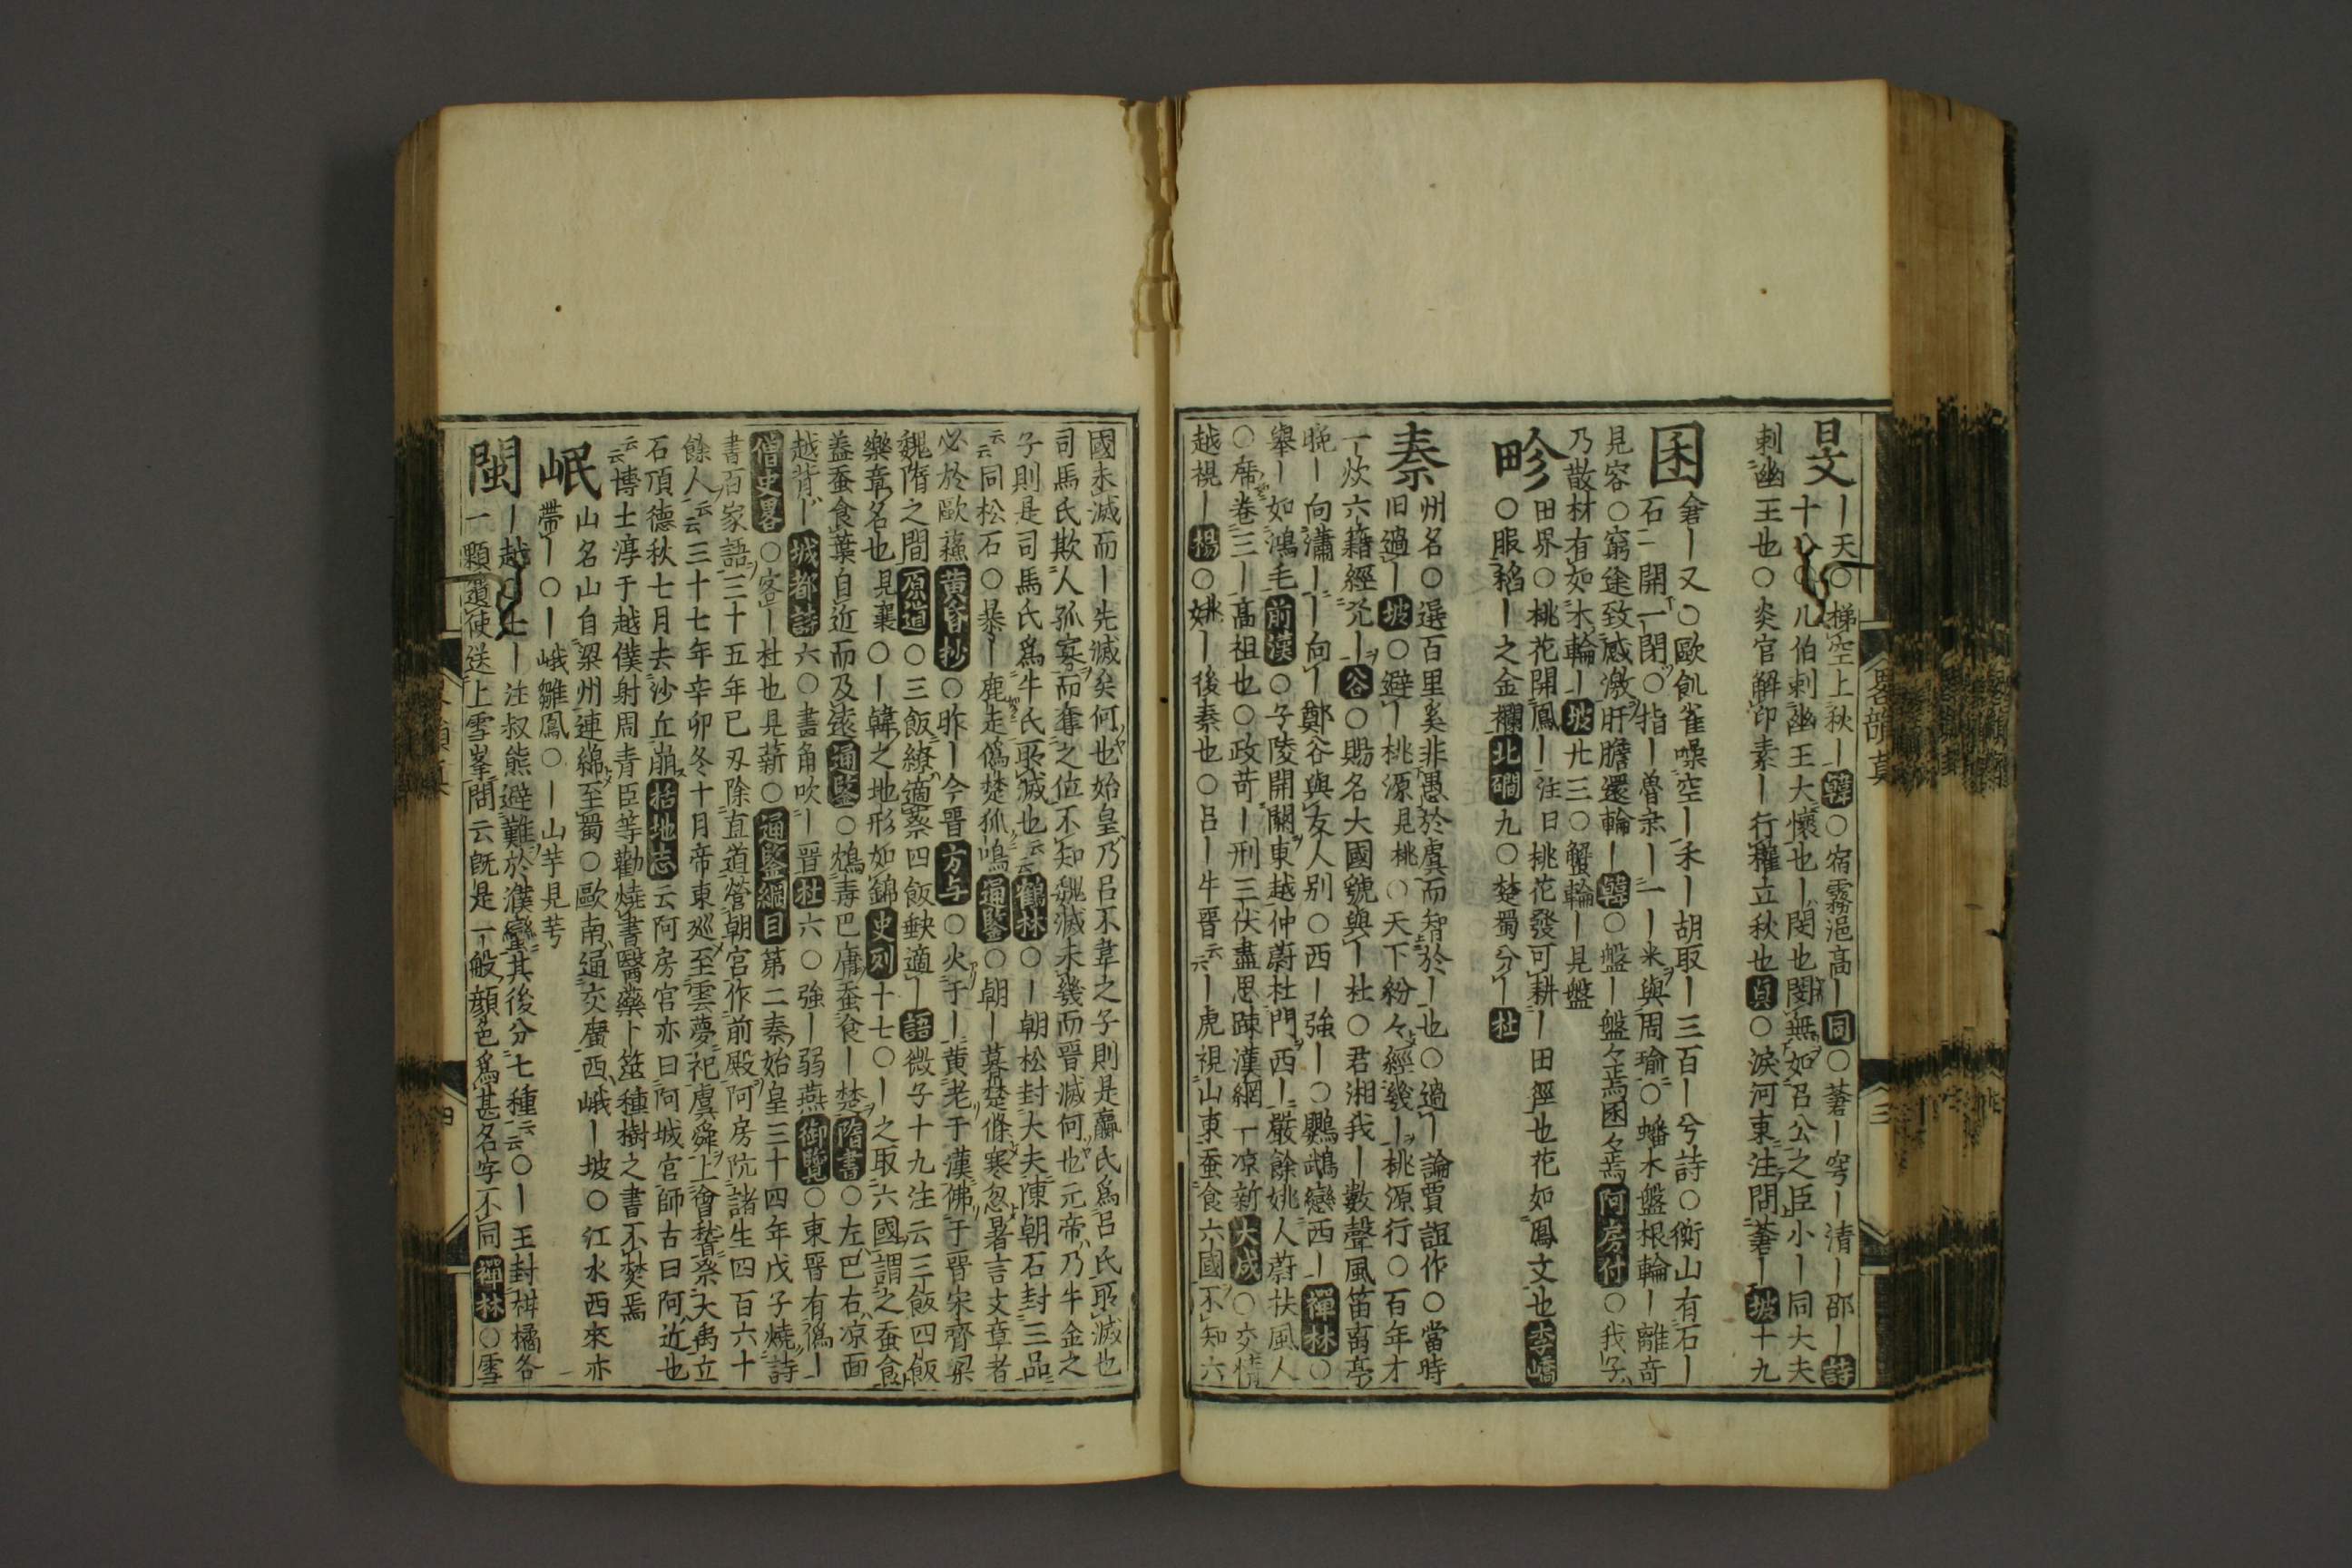 旻
｜天○梯空上秋｜韓○宿霧浥高｜同○蒼｜穹｜清｜邵｜詩
十八○凡伯刺幽王大懷也｜閔也閔無如召公之臣小｜同大夫
刺幽王也○炎官解印素｜行權立秋也貞○淚河東注問蒼｜坡十九
囷
倉｜又○歐飢雀噪空｜禾｜胡取｜三百｜兮詩○衡山有石｜
石｜開一閉○指｜魯肅｜一｜米與周瑜○蟠木盤根輪｜離奇
見容○窮途致感激肝膽還輪｜韓○盤｜盤々焉囷々焉阿房付○我子
乃散材有如木輪｜坡廾三○蟹輪｜見盤
畛
田界○桃花開鳳｜注曰桃花發可耕｜田徑也花如鳳文也李嶠
○服稻｜之金襴北磵九○楚蜀分｜杜
秦
州名○選百里奚非愚於虞而智於｜也○過｜論賈誼作○當時
旧過｜坡○避｜桃源見桃○天下紛々經幾｜桃源行○百年才
一炊六籍經㐬｜谷○賜名大國虢與｜杜○君湘我｜數聲風笛离亭
晩｜向瀟｜｜向｜鄭谷與友人別○西｜強｜○鸚鵡戀西｜禪林○
擧｜如鴻毛前漢○子陵開關東越仲蔚杜門西｜嚴餘姚人蔚扶風人
○席卷三｜高祖也○政苛｜刑三伏盡思踈漢網一凉新大成○交情
越視｜楊○姚｜後秦也○呂｜牛晋云云｜虎視山東蚕食六國不知六
國未滅而｜先滅矣何也始皇乃呂不韋之子則是嬴氏爲呂氏所滅也
司馬氏欺人孤寡而奪之位不知魏滅未幾而晋滅何也元帝乃牛金之
子則是司馬氏爲牛氏所滅也云云鶴林○｜朝松封大夫陳朝石封三品
云云同松石○暴｜鹿走僞楚狐鳴通鑒○朝｜暮楚條寒忽暑言文章者
必於歐蘇黄昏抄○昨｜今晋方与○火于｜黄老于漢佛于晋宋齊梁
魏隋之間原道○三飯繚適蔡四飯缺適｜語微子十九注云三飯四飯
樂章名也見襄○｜韓之地形如錦史列十七○｜之取六國謂之蚕食
蓋蚕食葉自近而及遠通鑒○鴆毒巴庸蚕食｜楚隋書○左巴右凉面
越背｜城都詩六○書角吹｜晋杜六○強｜弱燕御覽○東晋有僞｜
僧史畧○客｜杜也見薪○通鑒綱目第二秦始皇三十四年戊子燒詩
書百家語三十五年已丑除直道營朝宮作前殿阿房阬諸生四百六十
餘人云云三十七年辛卯冬十月帝東巡至雲夢祀虞舜上會稽祭大禹立
石頂德秋七月去沙丘崩括地志云阿房宮亦曰阿城宮師古曰阿近也
云云博士淳于越僕射周青臣等勸燒書醫藥卜筮種樹之書不焚焉
岷
山名山自梁州連綿至蜀○歐南通交廣西峨｜坡○江水西來亦
帶｜○｜峨雛鳳○｜山芋見芳
閩
｜越○七｜注叔熊避難於濮蠻其後分七種云云○｜王封柑橘各
一顆遣使送上雪峯問云既是一般顔色爲甚名字不同禪林○雪